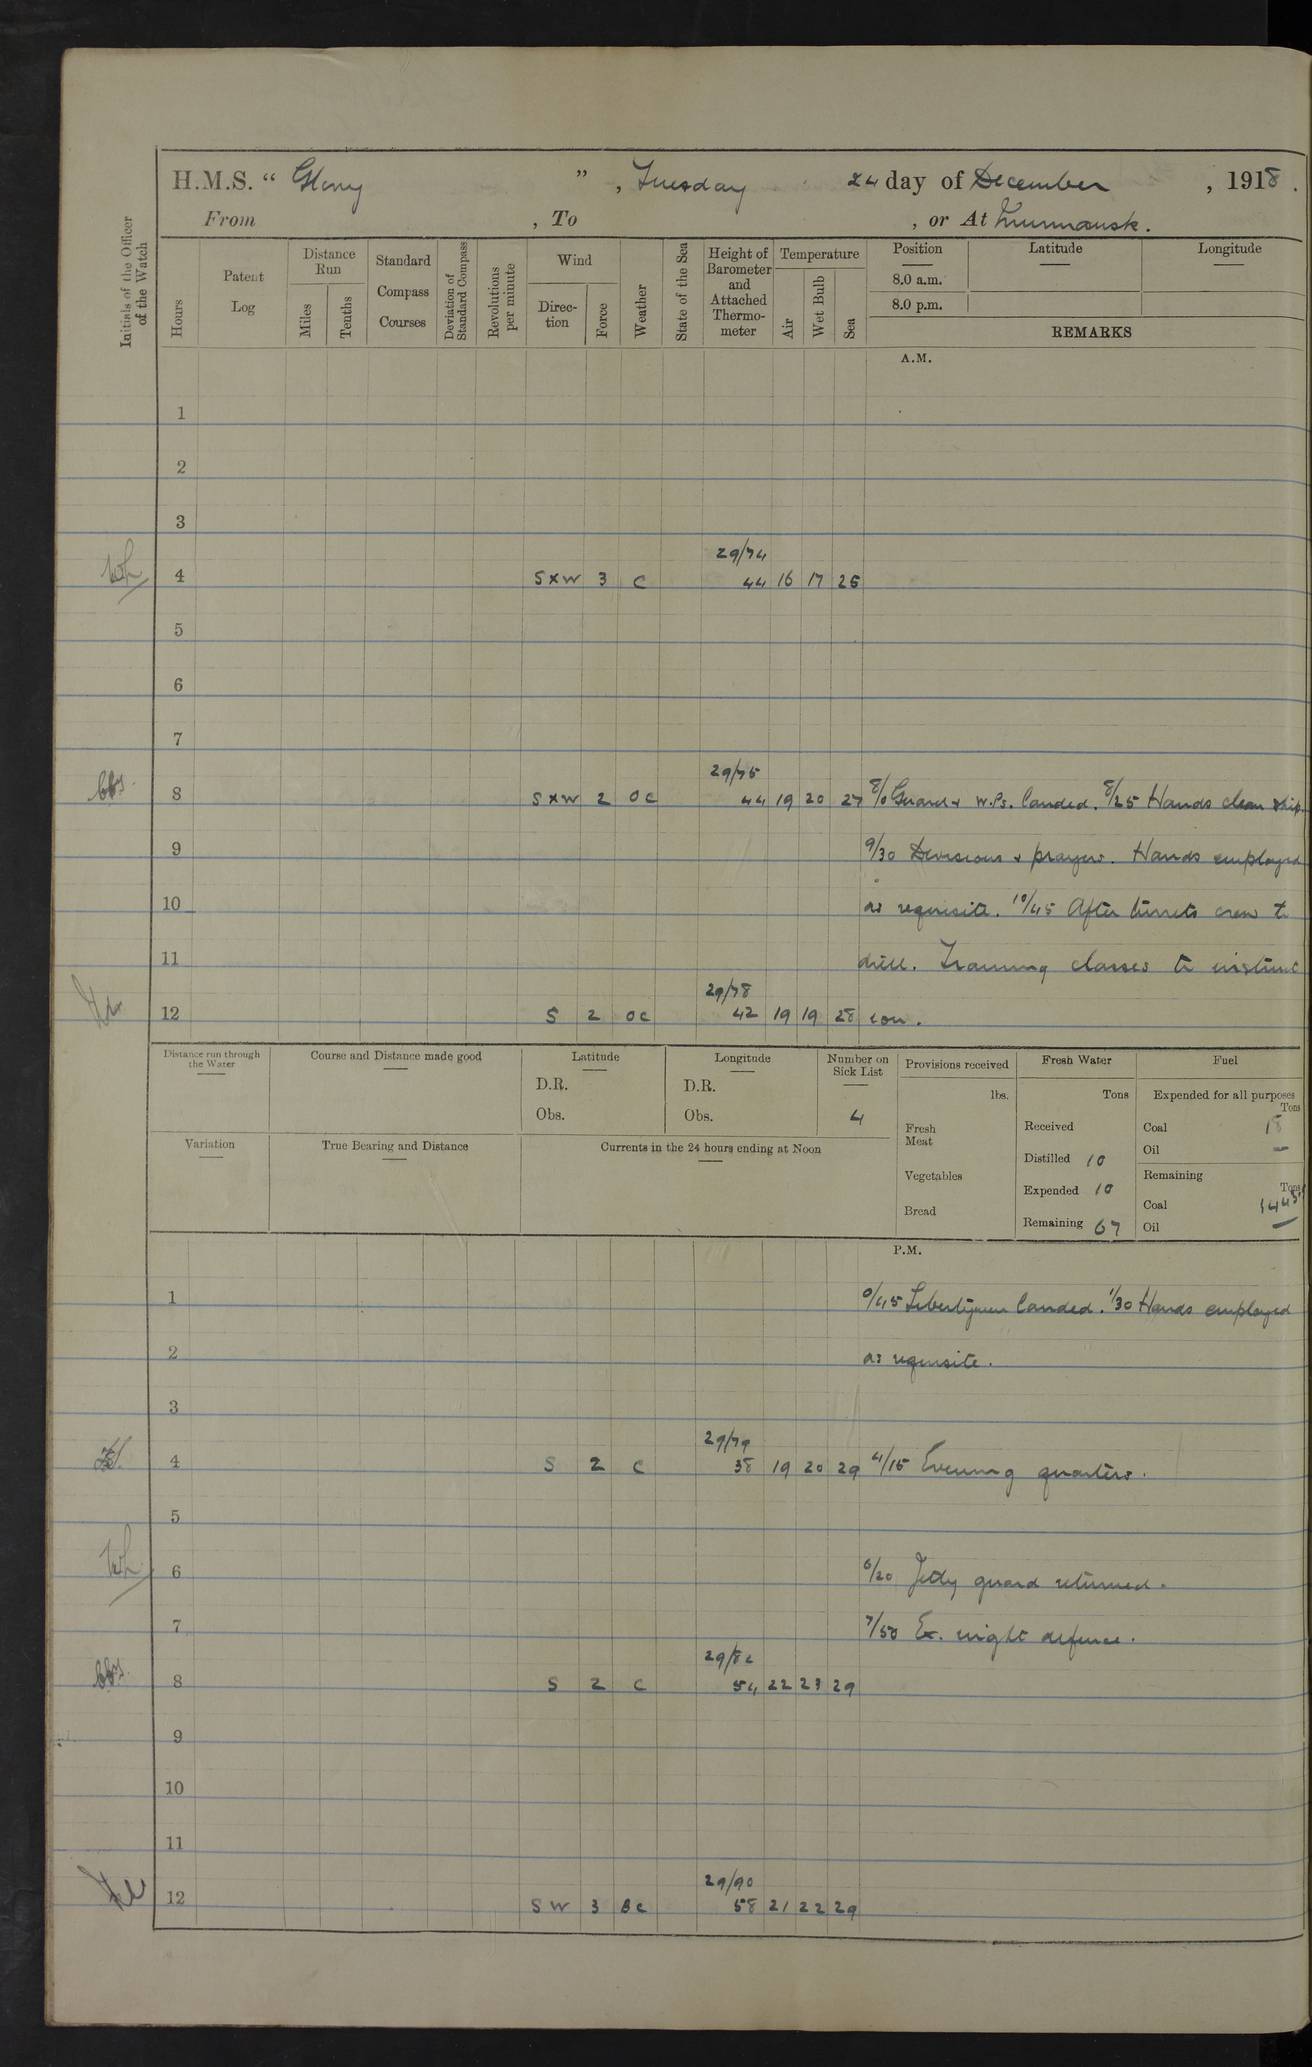 H.M.S. “ Glory ” , Tuesday 24 day of December , 1918 .
From , To , or At Murmansk .
Initials of the Officer of the Watch
Hours
Patent Log
Distance Run
Miles
Tenths
Standard Compass Courses
Deviation of Standard Compass
Revolutions per minute
Wind
Direc-tion
Force
Weather
State of the Sea
Height of Barometer and Attached Thermo-meter
Temperature
Air
Wet Bulb
Sea
Position Latitude Longitude
8.0 a.m.
8.0 p.m.
REMARKS
A.M.
1
2
3
29/74
4 S x W 3 C 44 16 17 26
5
6
7
29/75
8 S x W 2 OC 44 19 20 27 8/0 Guard & W.Ps. landed. 8/25 Hands clean ship.
9 9/30 Divisions & prayers. Hands employed
10 as requisite. 10/45 After turrets crew to
11 drill. Training classes to instruct
29/78
12 S 2 OC 42 19 19 28 ion .
Distance run through the Water
Course and Distance made good
Latitude
D.R.
Obs.
Longitude
D.R.
Obs.
Number on Sick List
4
Provisions received
lbs.
Fresh Meat
Vegetables
Bread
Fresh Water
Tons
Received
Distilled 10
Expended 10
Remaining 67
Fuel
Expended for all purposes
Tons
Coal 18
Oil —
Remaining
Tons
Coal 1445
Oil —
Variation
True Bearing and Distance
Currents in the 24 hours ending at Noon
P.M.
1 0/45 Libertymen landed. 1/30 Hands employed
2 as requisite .
3
29/79
4 S 2 C 38 19 20 29 4/15 Evening quarters .
5
6 6/20 Jetty guard returned .
7 7/50 Ex. night defence .
29/82
8 S 2 C 54 22 23 29
9
10
11
29/90
12 SW 3 BC 58 21 22 29